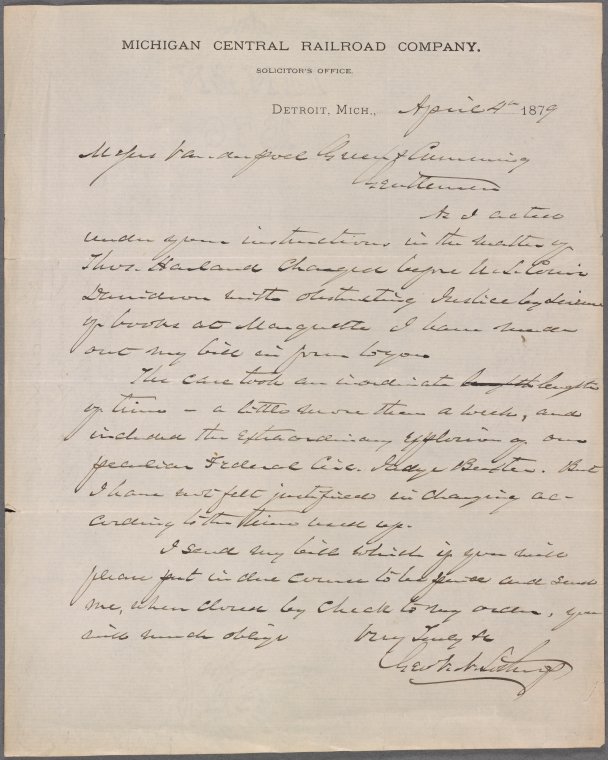 MICHIGAN CENTRAL RAILROAD COMPANY.
SOLICITOR'S OFFICE.
DETROIT, MICH., April 4th 1879
Messrs Vanderpoel Green & Cumming
Gentlemen
As I acted
under your instructions in the matter of
Thos. Harland Charged before U.S. Comr
Davidson with obstructing Justice by seizure
of books at Marquette I have made
out my bill in form to you
The case took an inordinate length
of time – a little more than a week, and
included the extraordinary explosion of our
peculiar Federal Circ. Judge Baxter. But
I have not felt justified in charging ac-
cording to the time used up.
I send my bill which if you will
please put in due course to be and send
me, when closed by Check to my order, you
will much oblige Very Truly &c
Geo. V. N. Lothrop